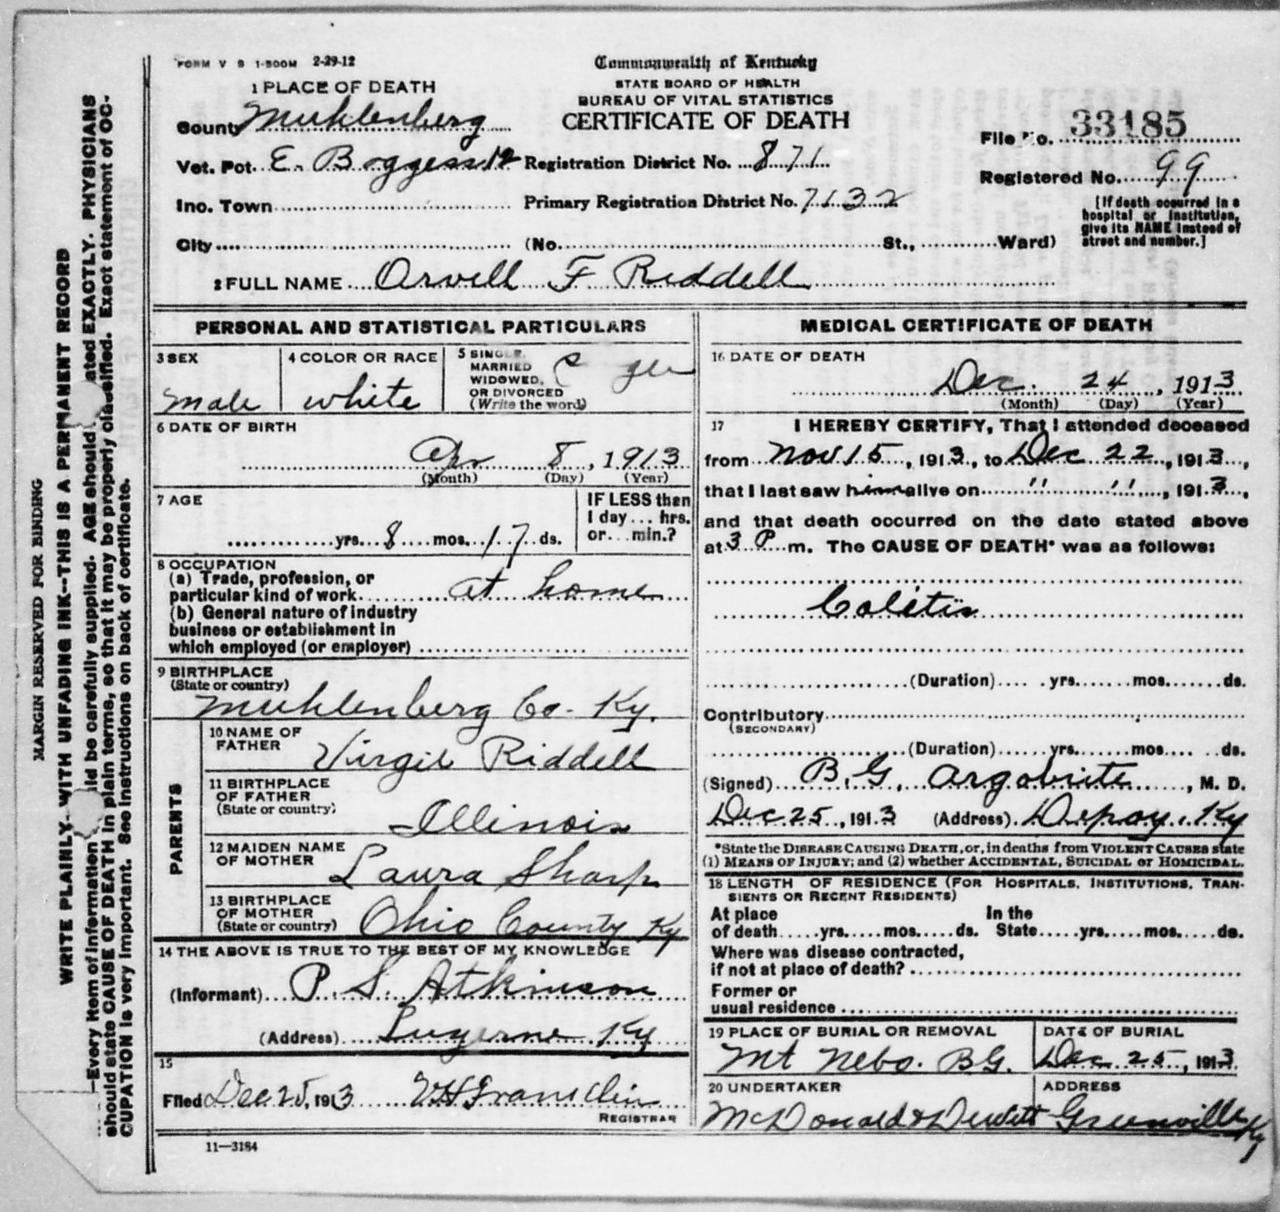 FORM V S 1-500M 2-29-12
Commonwealth of Kentucky
STATE BOARD OF HEALTH
BUREAU OF VITAL STATISTICS
CERTIFICATE OF DEATH
1 PLACE OF DEATH
County Muhlenberg
Vot. Pct. E. Boggess 12 Registration District No. 871
Inc. Town Primary Registration District No. 7132
City (No. St., Ward)
File No. 33185
Registered No. 99
[If death occurred in a
hospital or institution,
give its NAME instead of
street and number.]
2 FULL NAME Orvell F Riddell
PERSONAL AND STATISTICAL PARTICULARS
3 SEX
male
4 COLOR OR RACE
white
5 SINGLE,
MARRIED
WIDOWED,
OR DIVORCED
(Write the word)
6 DATE OF BIRTH
Apr 8, 1913
(Month) (Day) (Year)
7 AGE
yrs. 8 mos. 17 ds.
IF LESS than
1 day ... hrs.
or ... min.?
8 OCCUPATION
(a) Trade, profession, or
particular kind of work at home
(b) General nature of industry
business or establishment in
which employed (or employer)
9 BIRTHPLACE
(State or country)
Muhlenberg Co. Ky.
PARENTS
10 NAME OF
FATHER Virgil Riddell
11 BIRTHPLACE
OF FATHER
(State or country)
Illinois
12 MAIDEN NAME
OF MOTHER Laura Sharp
13 BIRTHPLACE
OF MOTHER
(State or country) Ohio County Ky
14 THE ABOVE IS TRUE TO THE BEST OF MY KNOWLEDGE
(Informant) P. S. Atkinson
(Address) Luzerne Ky
15
Filed Dec 25, 1913
REGISTRAR
11—3184
MEDICAL CERTIFICATE OF DEATH
16 DATE OF DEATH
Dec. 24, 1913
(Month) (Day) (Year)
17 I HEREBY CERTIFY, That I attended deceased
from Nov 15, 1913, to Dec 22, 1913,
that I last saw him alive on " ", 1913,
and that death occurred on the date stated above
at 3 P m. The CAUSE OF DEATH* was as follows:
Colitis
(Duration) yrs. mos. ds.
Contributory
(SECONDARY)
(Duration) yrs. mos. ds.
(Signed) B. G. Argabrite, M. D.
Dec 25, 1913 (Address) Depoy, Ky
*State the DISEASE CAUSING DEATH, or, in deaths from VIOLENT CAUSES state
(1) MEANS OF INJURY; and (2) whether ACCIDENTAL, SUICIDAL or HOMICIDAL.
18 LENGTH OF RESIDENCE (FOR HOSPITALS, INSTITUTIONS, TRAN-
SIENTS OR RECENT RESIDENTS)
At place In the
of death yrs. mos. ds. State yrs. mos. ds.
Where was disease contracted,
if not at place of death?
Former or
usual residence
19 PLACE OF BURIAL OR REMOVAL
Mt Nebo. B G.
DATE OF BURIAL
Dec 25, 1913
20 UNDERTAKER
McDonald & Dewitt
ADDRESS
Greenville Ky
MARGIN RESERVED FOR BINDING
WRITE PLAINLY WITH UNFADING INK--THIS IS A PERMANENT RECORD
—Every item of information should be carefully supplied. AGE should be stated EXACTLY. PHYSICIANS
should state CAUSE OF DEATH in plain terms, so that it may be properly classified. Exact statement of OC-
CUPATION is very important. See instructions on back of certificate.